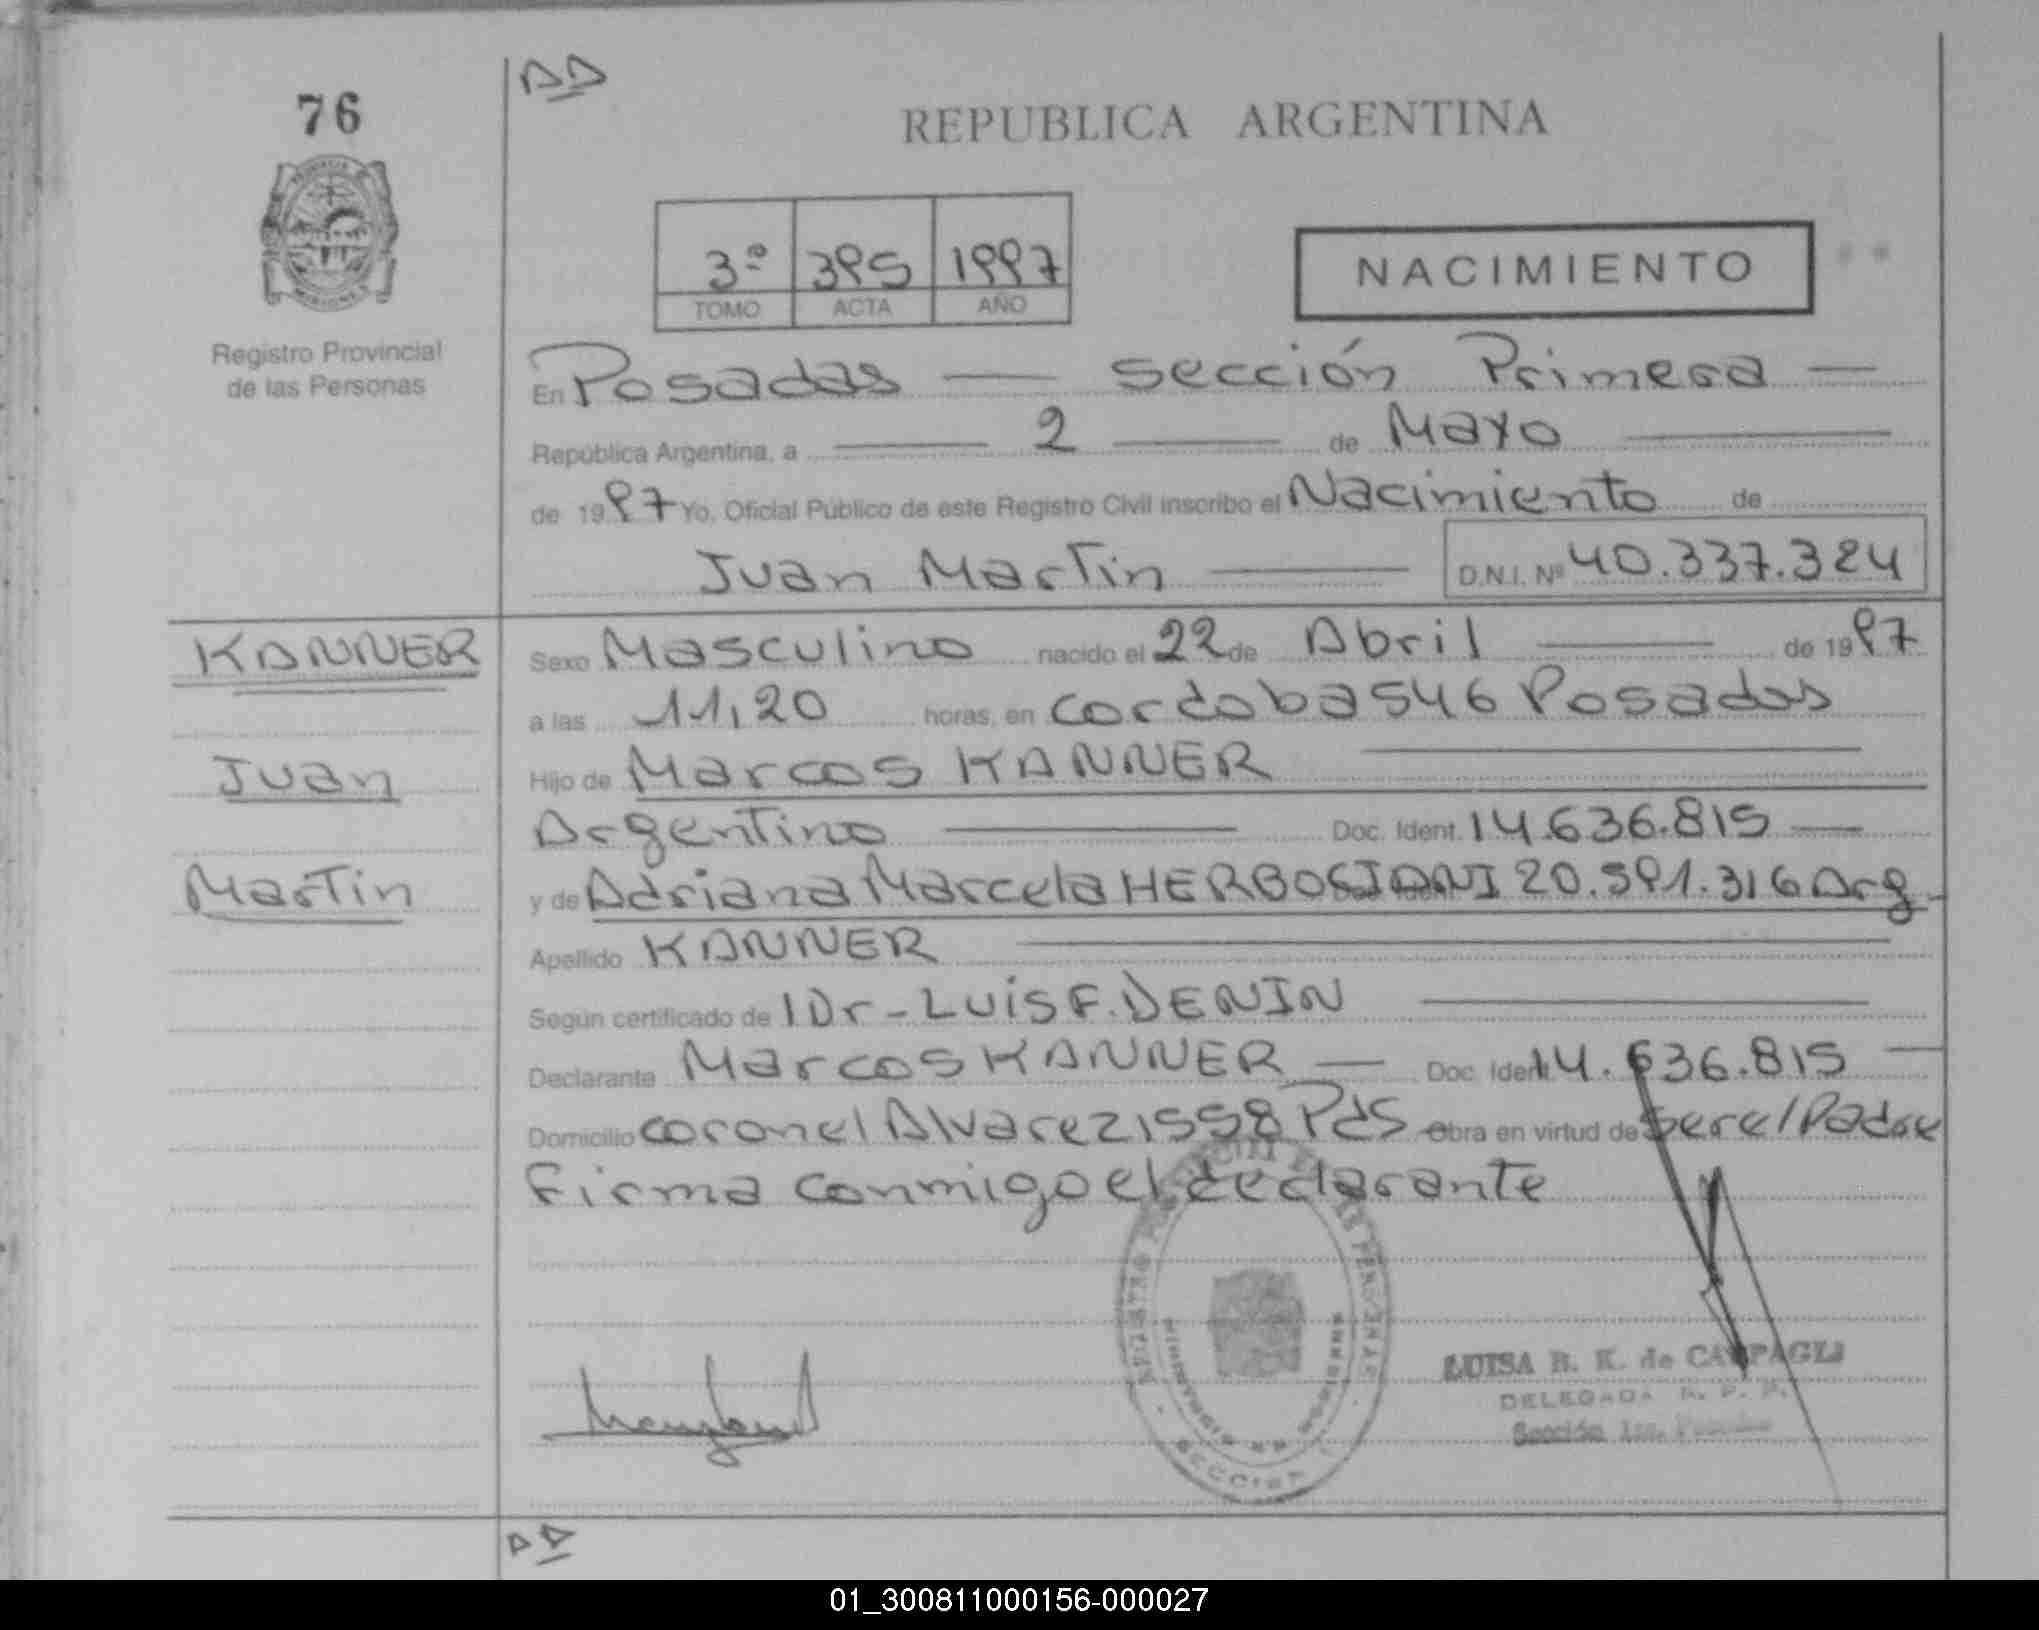 76
REPUBLICA ARGENTINA
3º 395 1997
TOMO ACTA AÑO
NACIMIENTO
Registro Provincial
de las Personas
En Posadas — sección Primera —
República Argentina, a — 2 — de Mayo —
de 1997 Yo, Oficial Público de este Registro Civil inscribo el Nacimiento de
Juan Martin — D.N.I. Nº 40.337.324
KANNER
Juan
Martin
Sexo Masculino nacido el 22 de Abril — de 1997
a las 11,20 horas, en cordoba 546 Posadas
Hijo de Marcos KANNER —
Argentino — Doc. Ident. 14.636.815 —
y de Adriana Marcela 20.591.316 Arg
Apellido KANNER —
Según certificado de l Dr - LUIS F. DENIN —
Declarante Marcos KANNER — Doc. Ident. 14.636.815 —
Domicilio coronel Alvarez 1558 Pds Obra en virtud de ser el Padre
Firma conmigo el declarante
LUISA R. K. de
DELEGADA R. P. P.
Sección 1ra.
01_300811000156-000027